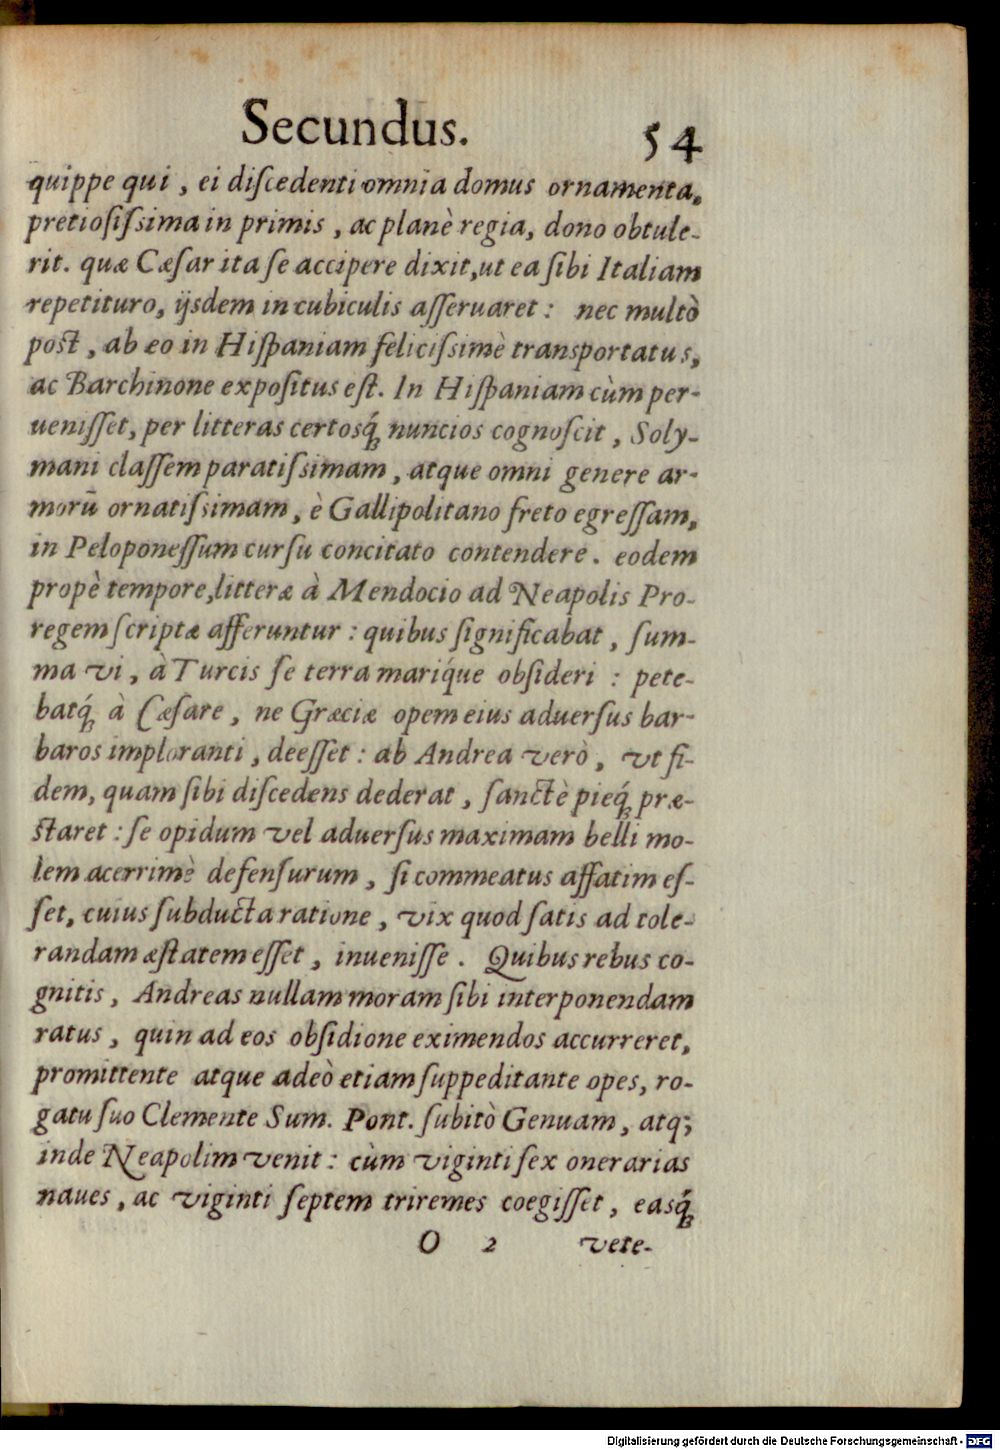 Secundus. 54
quippe qui, ei diſcedenti omnia domus ornamenta,
pretioſiſsima in primis, ac planè regia, dono obtule-
rit. quæ Cæſar ita ſe accipere dixit, ut ea ſibi Italiam
repetituro, ijsdem in cubiculis aſſeruaret: nec multò
poſt, ab eo in Hiſpaniam feliciſsimè transportatus,
ac Barchinone expoſitus eſt. In Hiſpaniam cùm per-
ueniſſet, per litteras certosq́ꝫ nuncios cognoſcit, Soly-
mani claſſem paratiſsimam, atque omni genere ar-
morū ornatiſsimam, è Gallipolitano freto egreſſam,
in Peloponeſſum curſu concitato contendere. eodem
propè tempore, litteræ à Mendocio ad Neapolis Pro-
regem ſcriptæ afferuntur: quibus ſignificabat, ſum-
ma vi, à Turcis ſe terra mariq́ue obſideri: pete-
batq́ꝫ à Cæſare, ne Græciæ opem eius aduerſus bar-
baros imploranti, deeſſet: ab Andrea verò, vt fi-
dem, quam ſibi diſcedens dederat, ſanctè pieq́ꝫ præ-
ſtaret: ſe opidum vel aduerſus maximam belli mo-
lem acerrimè defenſurum, ſi commeatus affatim eſ-
ſet, cuius ſubducta ratione, vix quod ſatis ad tole-
randam æſtatem eſſet, inueniſſe. Quibus rebus co-
gnitis, Andreas nullam moram ſibi interponendam
ratus, quin ad eos obſidione eximendos accurreret,
promittente atque adeò etiam ſuppeditante opes, ro-
gatu ſuo Clemente Sum. Pont. ſubitò Genuam, atq;
inde Neapolim venit: cùm viginti ſex onerarias
naues, ac viginti ſeptem triremes coegiſſet, easq́ꝫ
O 2 vete-
Digitalisierung gefördert durch die Deutsche Forschungsgemeinschaft - DFG